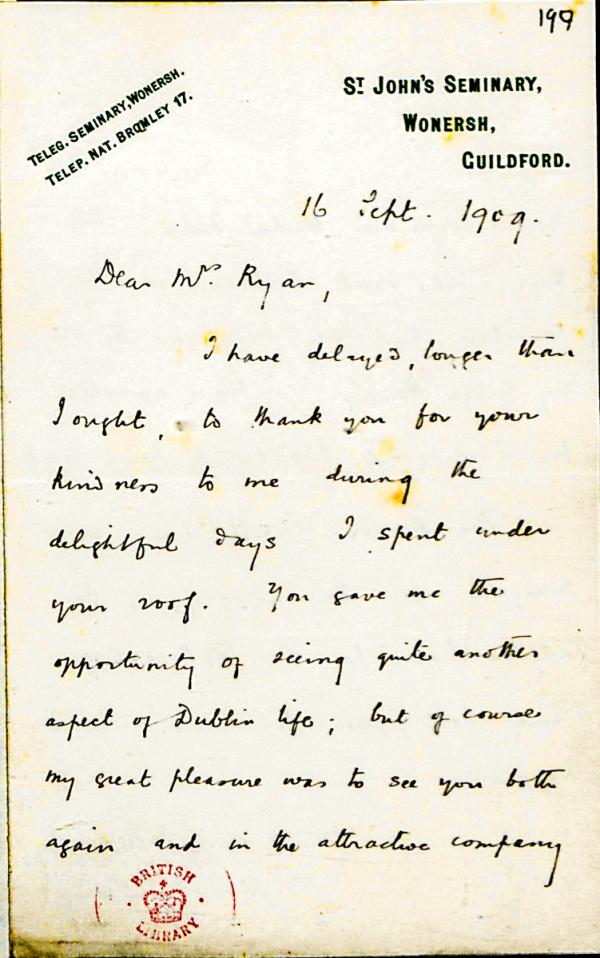 199
TELEG. SEMINARY, WONERSH.
TELEP. NAT. BROMLEY 17.
ST JOHN'S SEMINARY,
WONERSH,
GUILDFORD.
16 Sept. 1909.
Dear Mrs. Ryan,
I have delayed, longer than
I ought, to thank you for your
kindness to me during the
delightful days I spent under
your roof. You gave me the
opportunity of seeing quite another
aspect of Dublin life; but of course
my great pleasure was to see you both
again and in the attractive company
BRITISH
LIBRARY